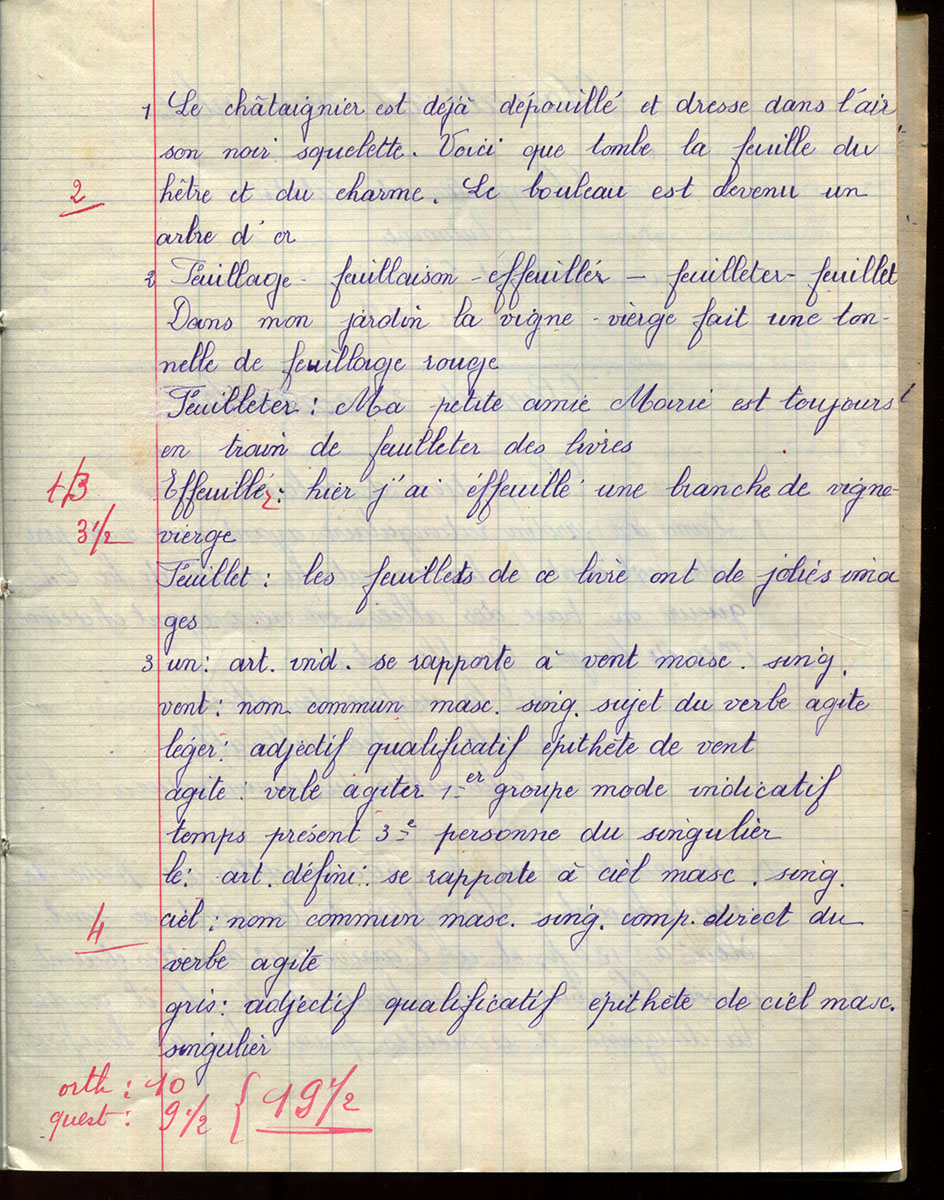 1 Le châtaignier est déjà dépouillé et dresse dans l'air
son noir squelette. Voici que tombe la feuille du
2
hêtre et du charme. Le bouleau est devenu un
arbre d'or
2 Feuillage - feuillaison - éffeuillér - feuilleter - feuillet
Dans mon jardin la vigne-vierge fait une ton-
nelle de feuillage rouge
Feuilleter : Ma petite amie Marie est toujours
en train de feuilleter des livres
Effeuillér : hier j'ai éffeuillé une branche de vigne-
3 1/2
vierge
Feuillet : les feuillets de ce livre ont de jolies ima
ges
3 un : art. ind. se rapporte à vent masc. sing.
vent : nom commun masc. sing. sujet du verbe agite
léger : adjectif qualificatif épithète de vent
agite : verbe agiter 1er groupe mode indicatif
temps présent 3e personne du singulier
le : art. défini : se rapporte à ciel masc. sing.
4
ciel : nom commun masc. sing. comp. direct du
verbe agite
gris : adjectif qualificatif épithète de ciel masc.
singulier
orth : 10
quest : 9 1/2 { 19 1/2